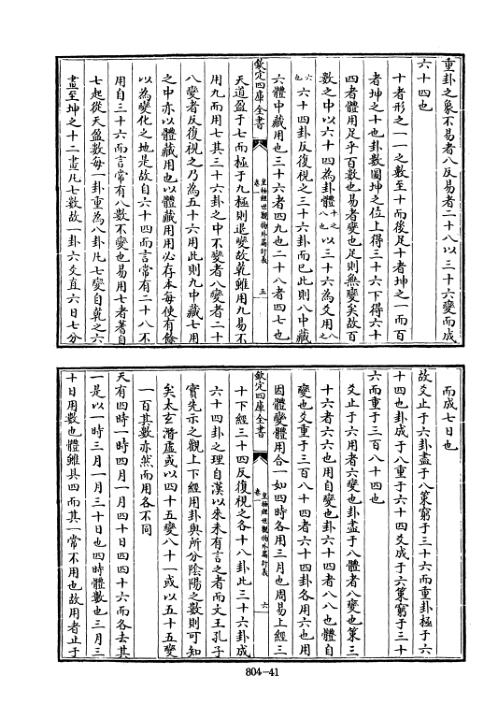 重卦之象不易者八反易者二十八以三十六變而成
六十四也
十者形之一一之數至十而後足十者坤之一一而百
者坤之十也卦數圖坤之位上得三十六下得六十
四者體用足乎百數也易者變也足則無變矣故百
數之中以六十四為卦體十之八也以三十六為爻用六之六也
六十四卦反復視之三十六卦而已此則八中藏
六體中藏用也三十六者四九也二十八者四七也
欽定四庫全書
皇極經世觀物外篇衍義
卷一
五
天道盈于七而極于九極則退變故乾雖用九易不
用九而用七其三十六卦之中不變者八變者二十
八變者反復視之乃為五十六用此則九中藏七用
之中亦以體藏用也以體藏用用必存本每使有餘
以為變化之地是故自六十四而言常有二十八不
用自三十六而言常有八數不變也易用七者蓍自
七起從天盈數每一卦重為八卦凡七變自乾之六
畫至坤之十二畫凡七數故一卦六爻直六日七分
而成七日也
故爻止于六卦盡于八策窮于三十六而重卦極于六
十四也卦成于八重于六十四爻成于六策窮于三十
六而重于三百八十四也
爻止于六用者六變也卦盡于八體者八變也策三
十六者六六也用自變也卦六十四者八八也體自
變也爻重于三百八十四者六十四卦各用六也用
因體變體用合一如四時各用三月也周易上經三
欽定四庫全書
皇極經世觀物外篇衍義
卷一
六
十下經三十四反復視之各十八卦此三十六卦成
六十四卦之理自漢以來未有言之者而文王孔子
實先示之觀上下經用卦與所分陰陽之數則可知
矣太玄潛虛或以四十五變八十一或以五十五變
一百其數亦然而用各不同
天有四時一時四月一月四十日四四十六而各去其
一是以一時三月一月三十日也四時體數也三月三
十日用數也體雖具四而其一常不用也故用者止于
804-41